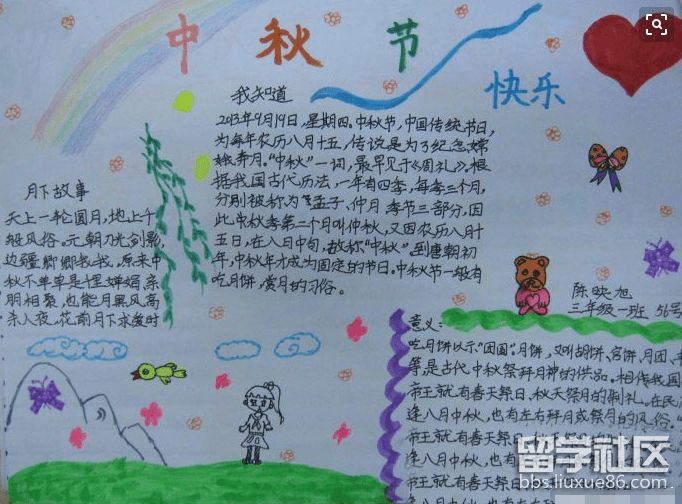 中秋节
快乐
我知道
2013年9月19日,星期四,中秋节,中国传统节日,
为每年农历八月十五,传说是为了纪念嫦
娥奔月。“中秋”一词,最早见于《周礼》,根
据我国古代历法,一年有四季,每季三个月,
分别被称为孟子、仲月季节三部分,因
此中秋季第二个月叫仲秋,又因农历八月十
五日,在八月中旬,故称“中秋”。到唐朝初
年,中秋年才成为固定的节日。中秋节一般有
吃月饼,赏月的习俗。
月下故事
天上一轮圆月,地上千
般风俗。元朝刀光剑影,
边疆卿卿我我,原来中
秋不单单是佳婵娟亲
明相聚,也能月黑风高
杀入夜,花前月下求爱时
陈映旭
三年级一班 56号
意义:
吃月饼以示“团圆”。月饼,又叫胡饼、宫饼、月团、
等是古代中秋祭拜月神的供品。相传我国
帝王就有春天祭日,秋天祭月的制礼。在民
逢八月中秋,也有左右拜月或祭月的风俗。
帝王就有春天祭日,
逢八月中秋,也有
帝王就有春天祭日
逢八月中秋,也有
留学社区
bbs.liuxue86.com